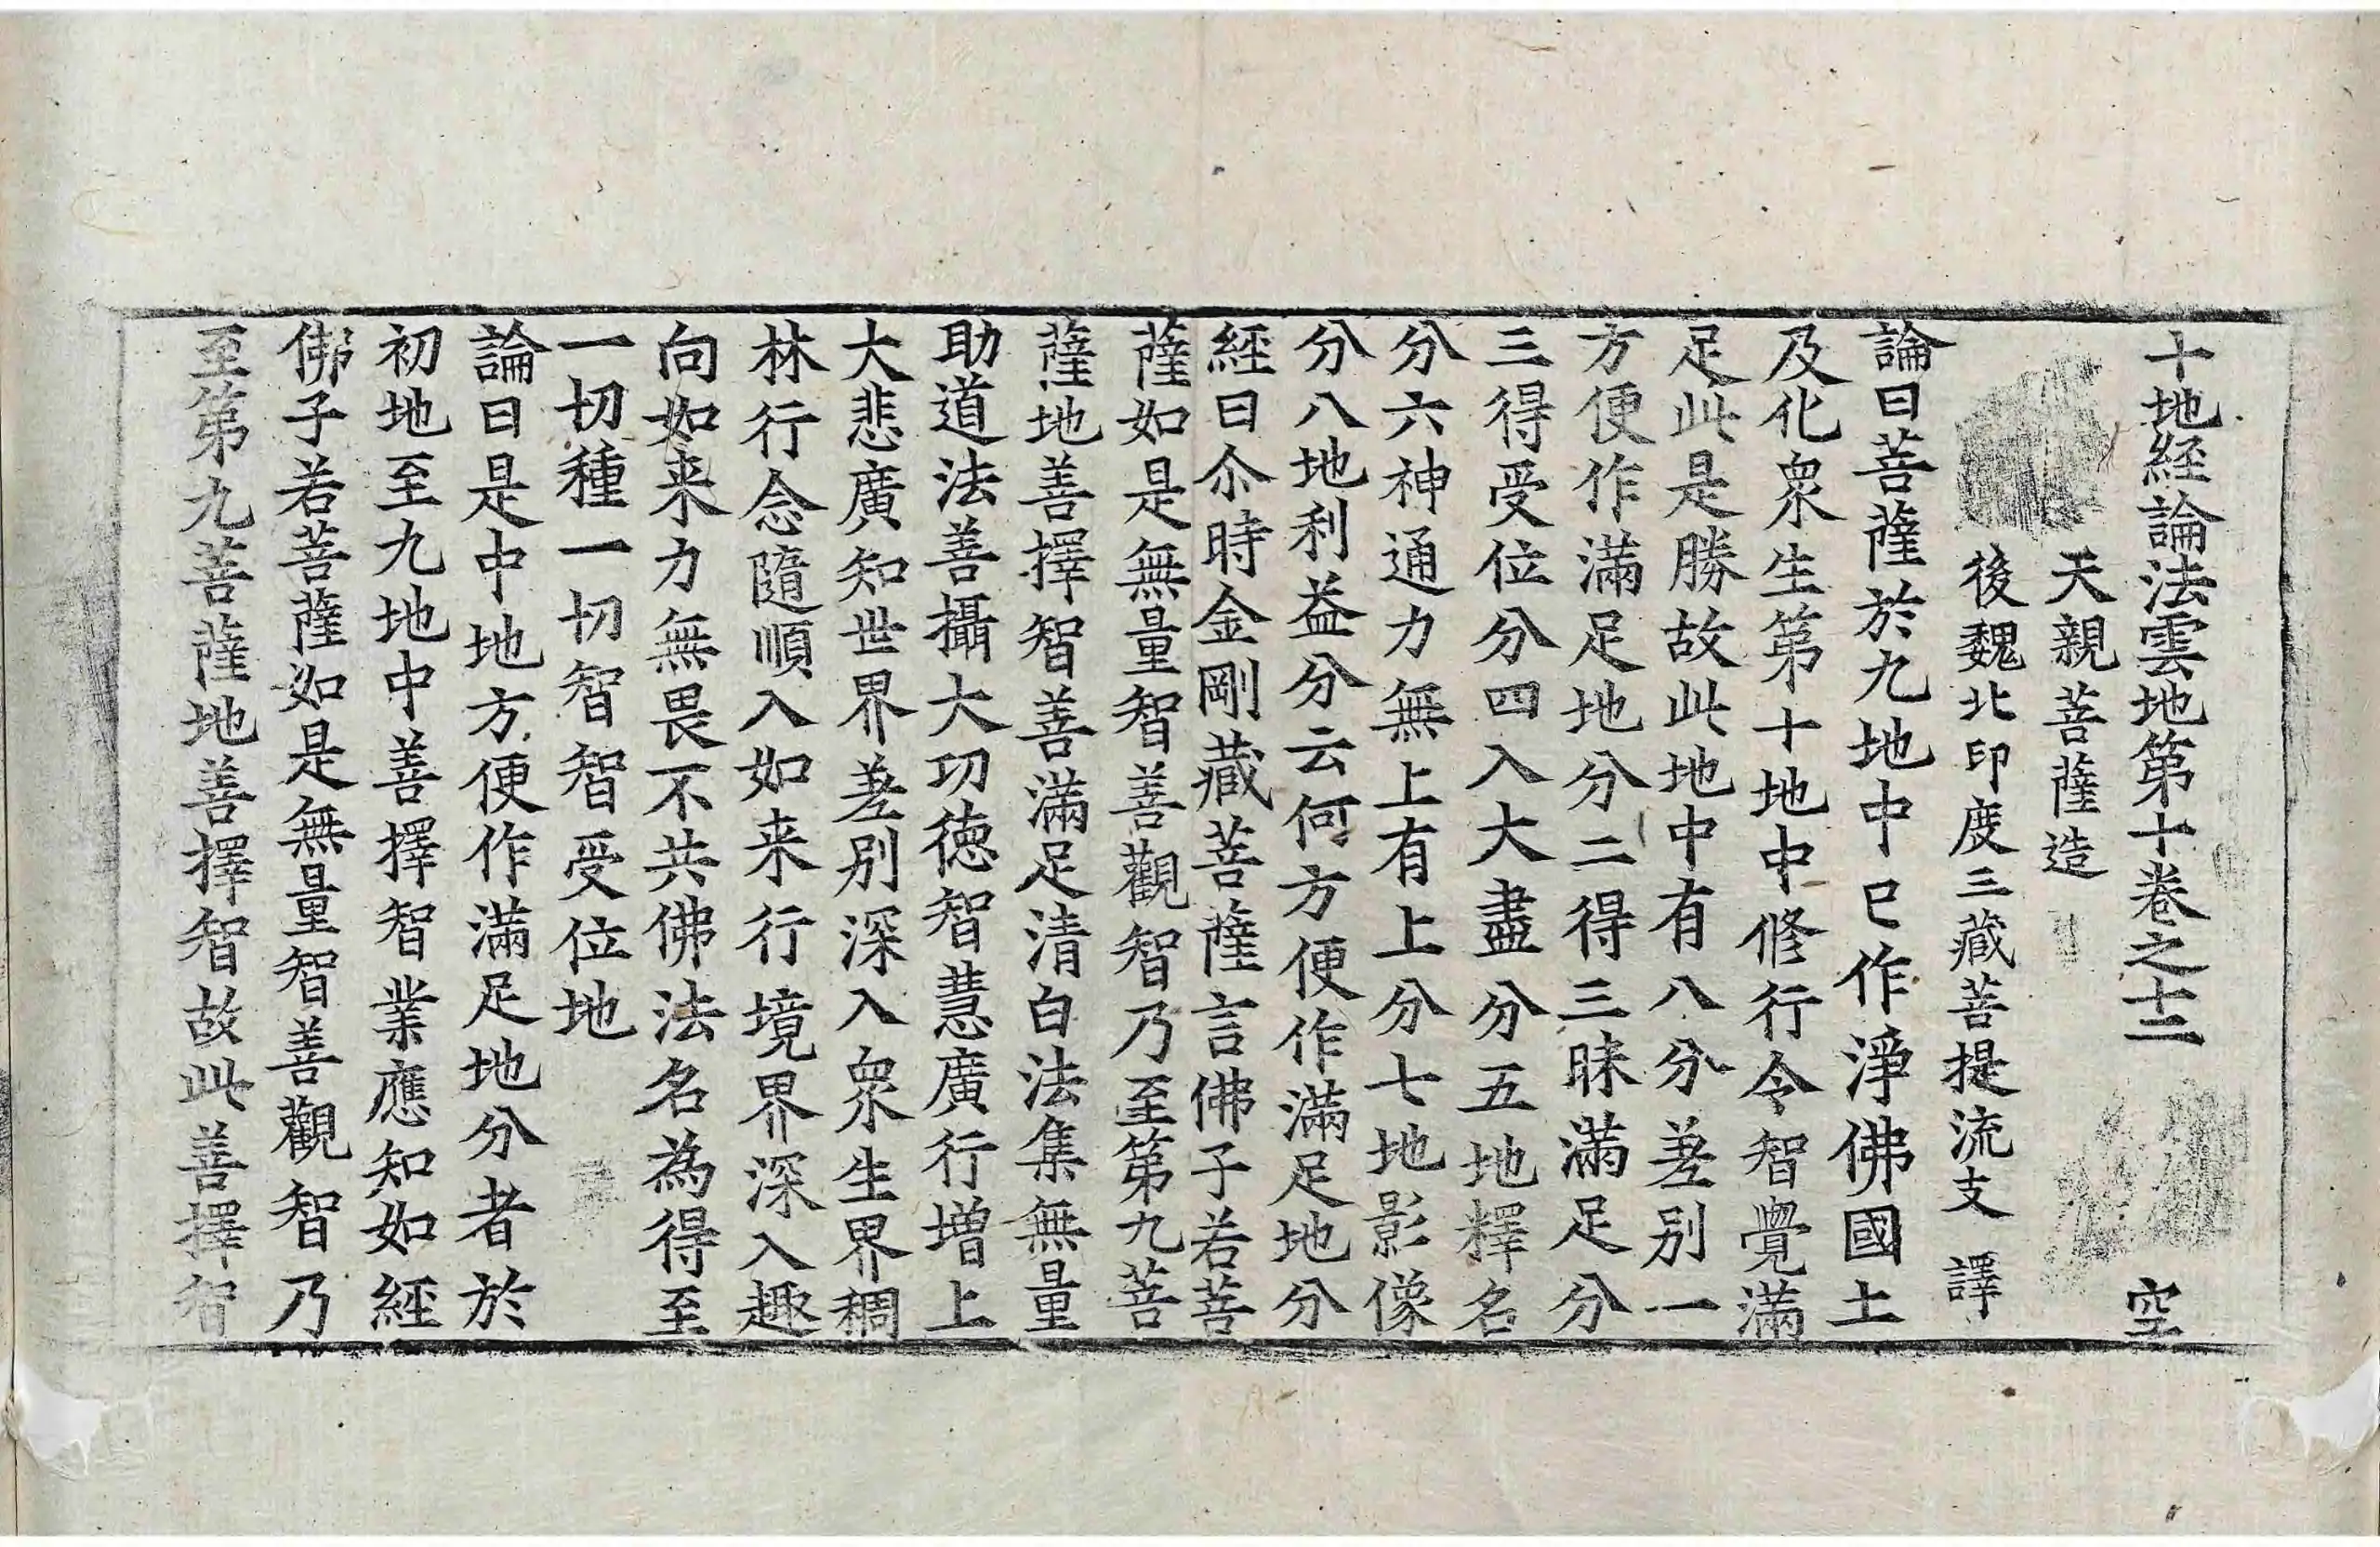 十地経論法雲地第十卷之十二 空
天親菩薩造
後魏北印度三藏菩提流支 譯
論曰菩薩於九地中已作淨佛國土
及化衆生第十地中修行令智覺滿
足此是勝故此地中有八分差别一
方便作滿足地分二得三昧滿足分
三得受位分四入大盡分五地釋名
分六神通力無上有上分七地影像
分八地利益分云何方便作滿足地分
經曰尒時金剛藏菩薩言佛子若菩
薩如是無量智善觀智乃至第九菩
薩地善擇智善滿足清白法集無量
助道法善攝大功德智慧廣行增上
大悲廣知世界差别深入衆生界稠
林行念隨順入如来行境界深入趣
向如来力無畏不共佛法名為得至
一切種一切智智受位地
論曰是中地方便作滿足地分者於
初地至九地中善擇智業應知如經
佛子若菩薩如是無量智善觀智乃
至第九菩薩地善擇智故此善擇智